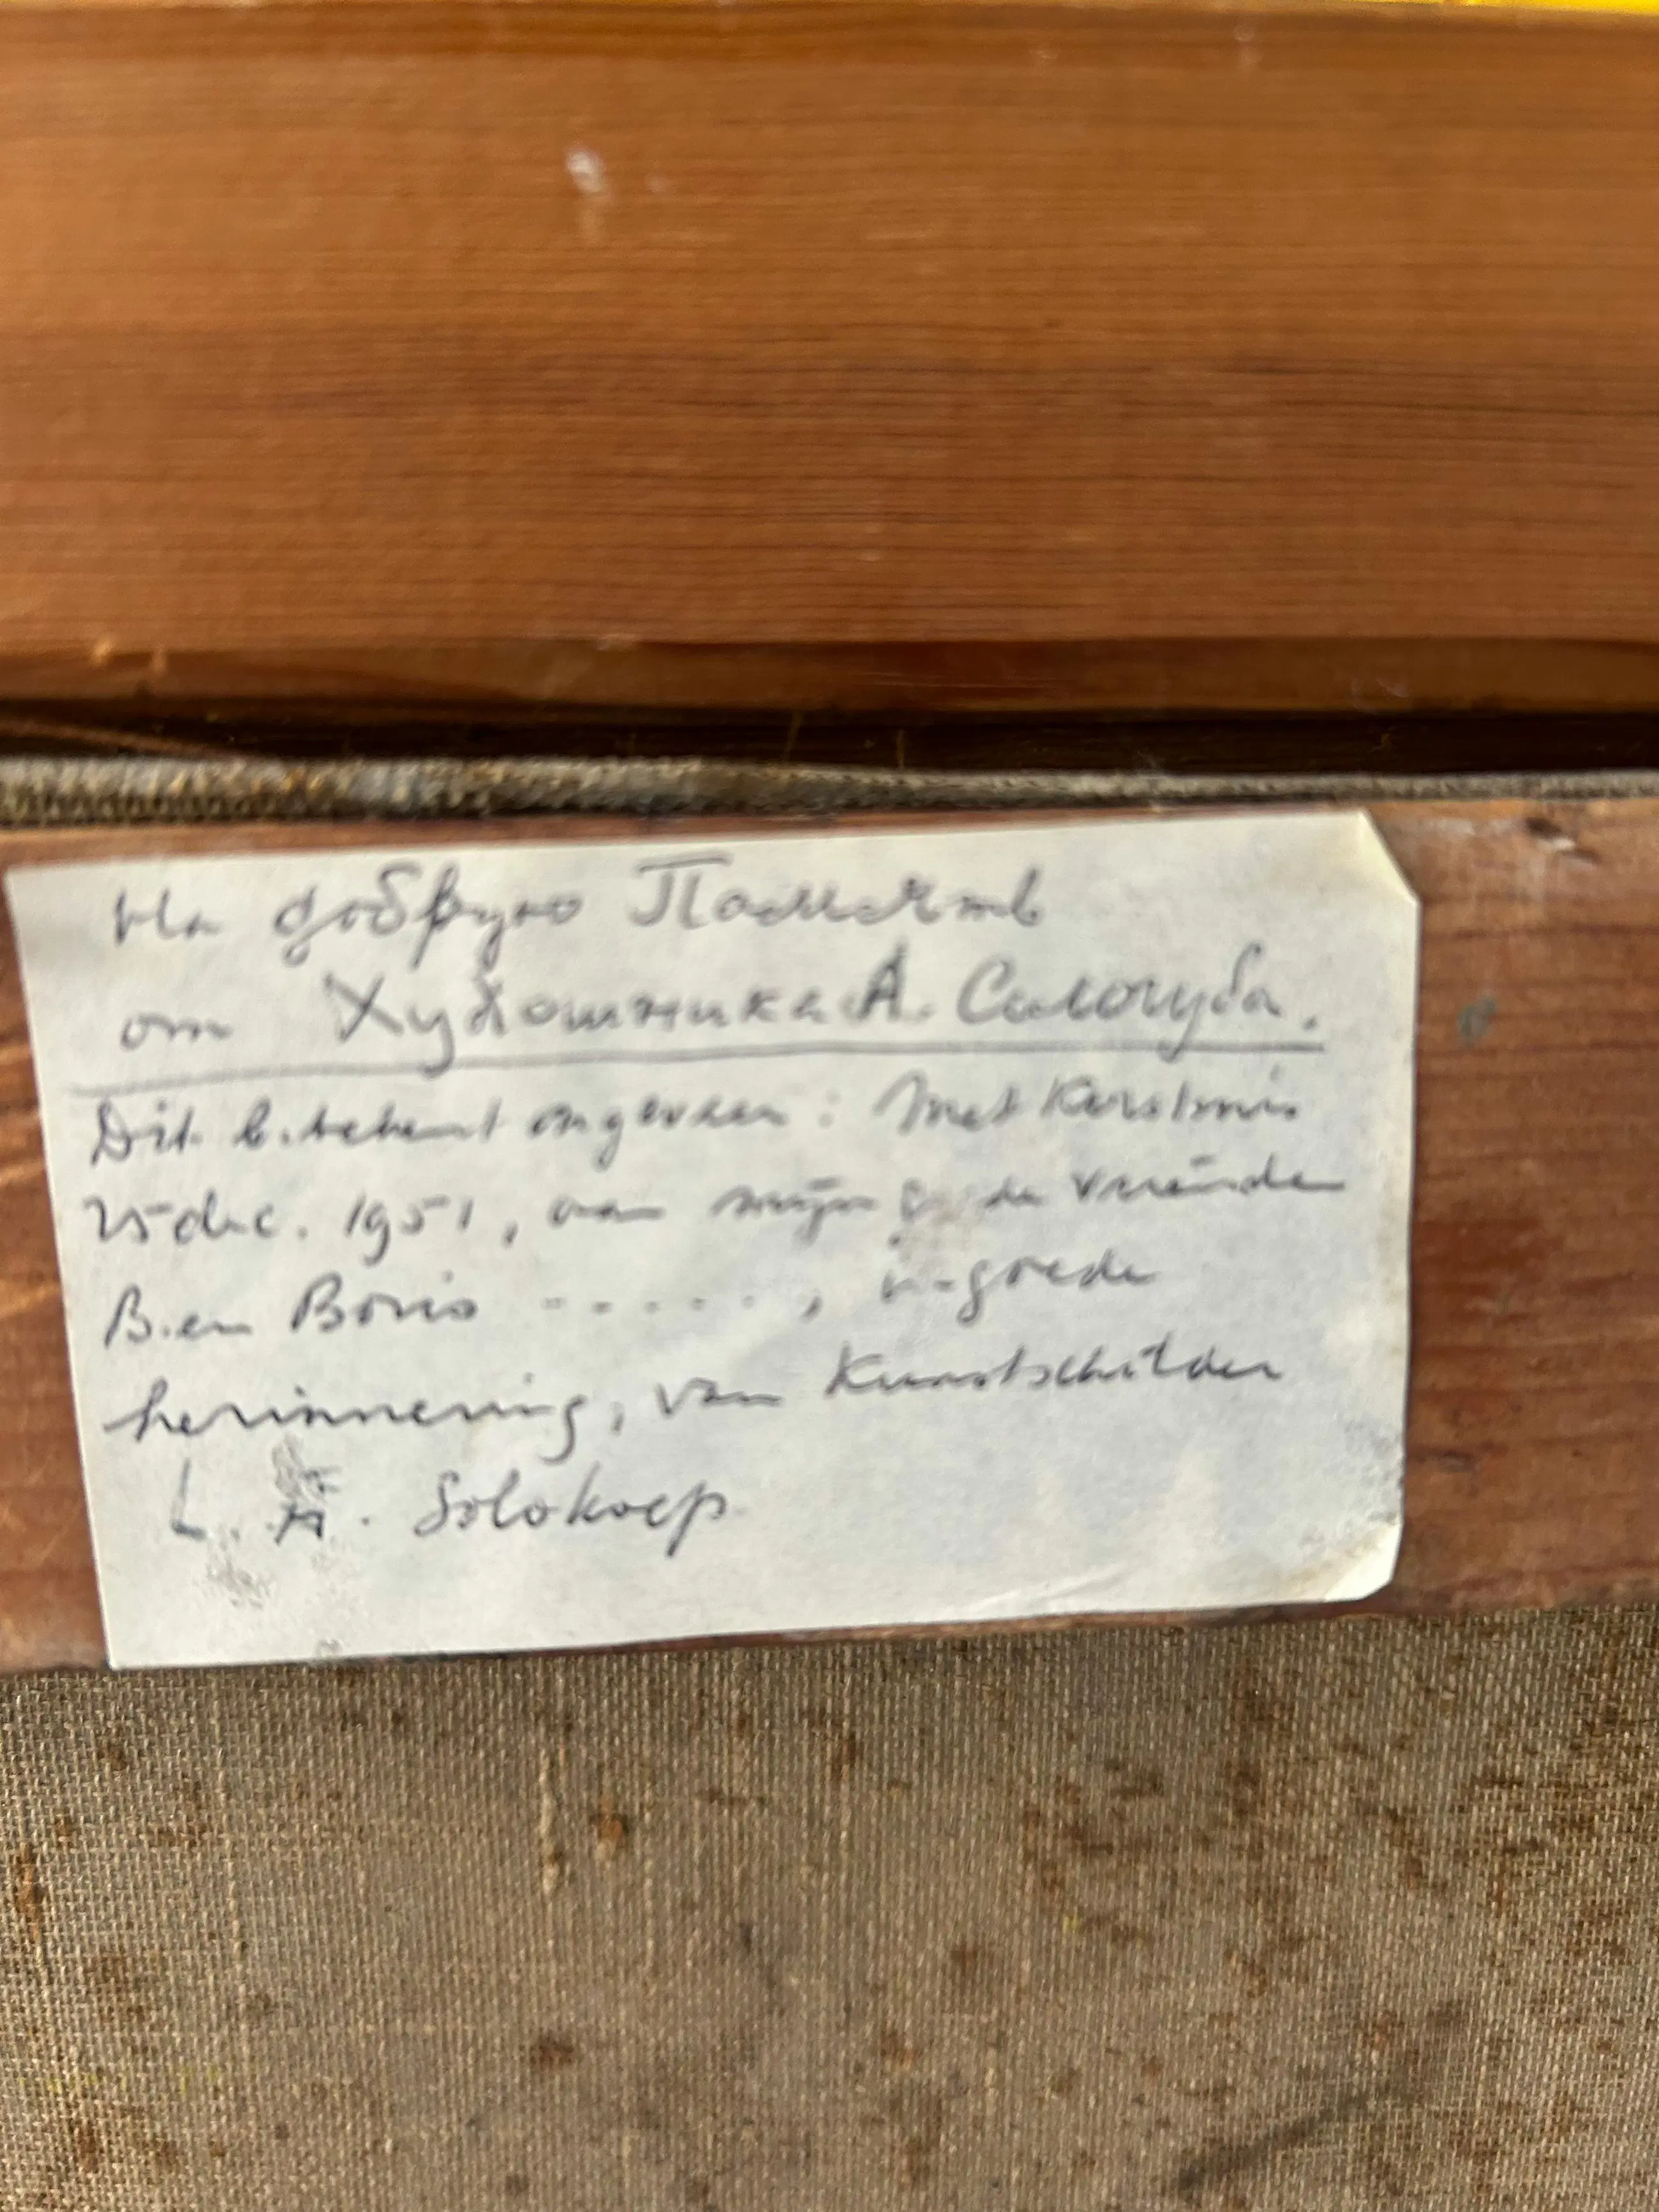 На добрую Память
от Художника А. Сологуба.
Dit betekent ongeveer: Met Kerstmis
25 dec. 1951, aan mijn goede vrienden
B. en Boris ......, in goede
herinnering, van Kunstschilder
L. A. Solokoep